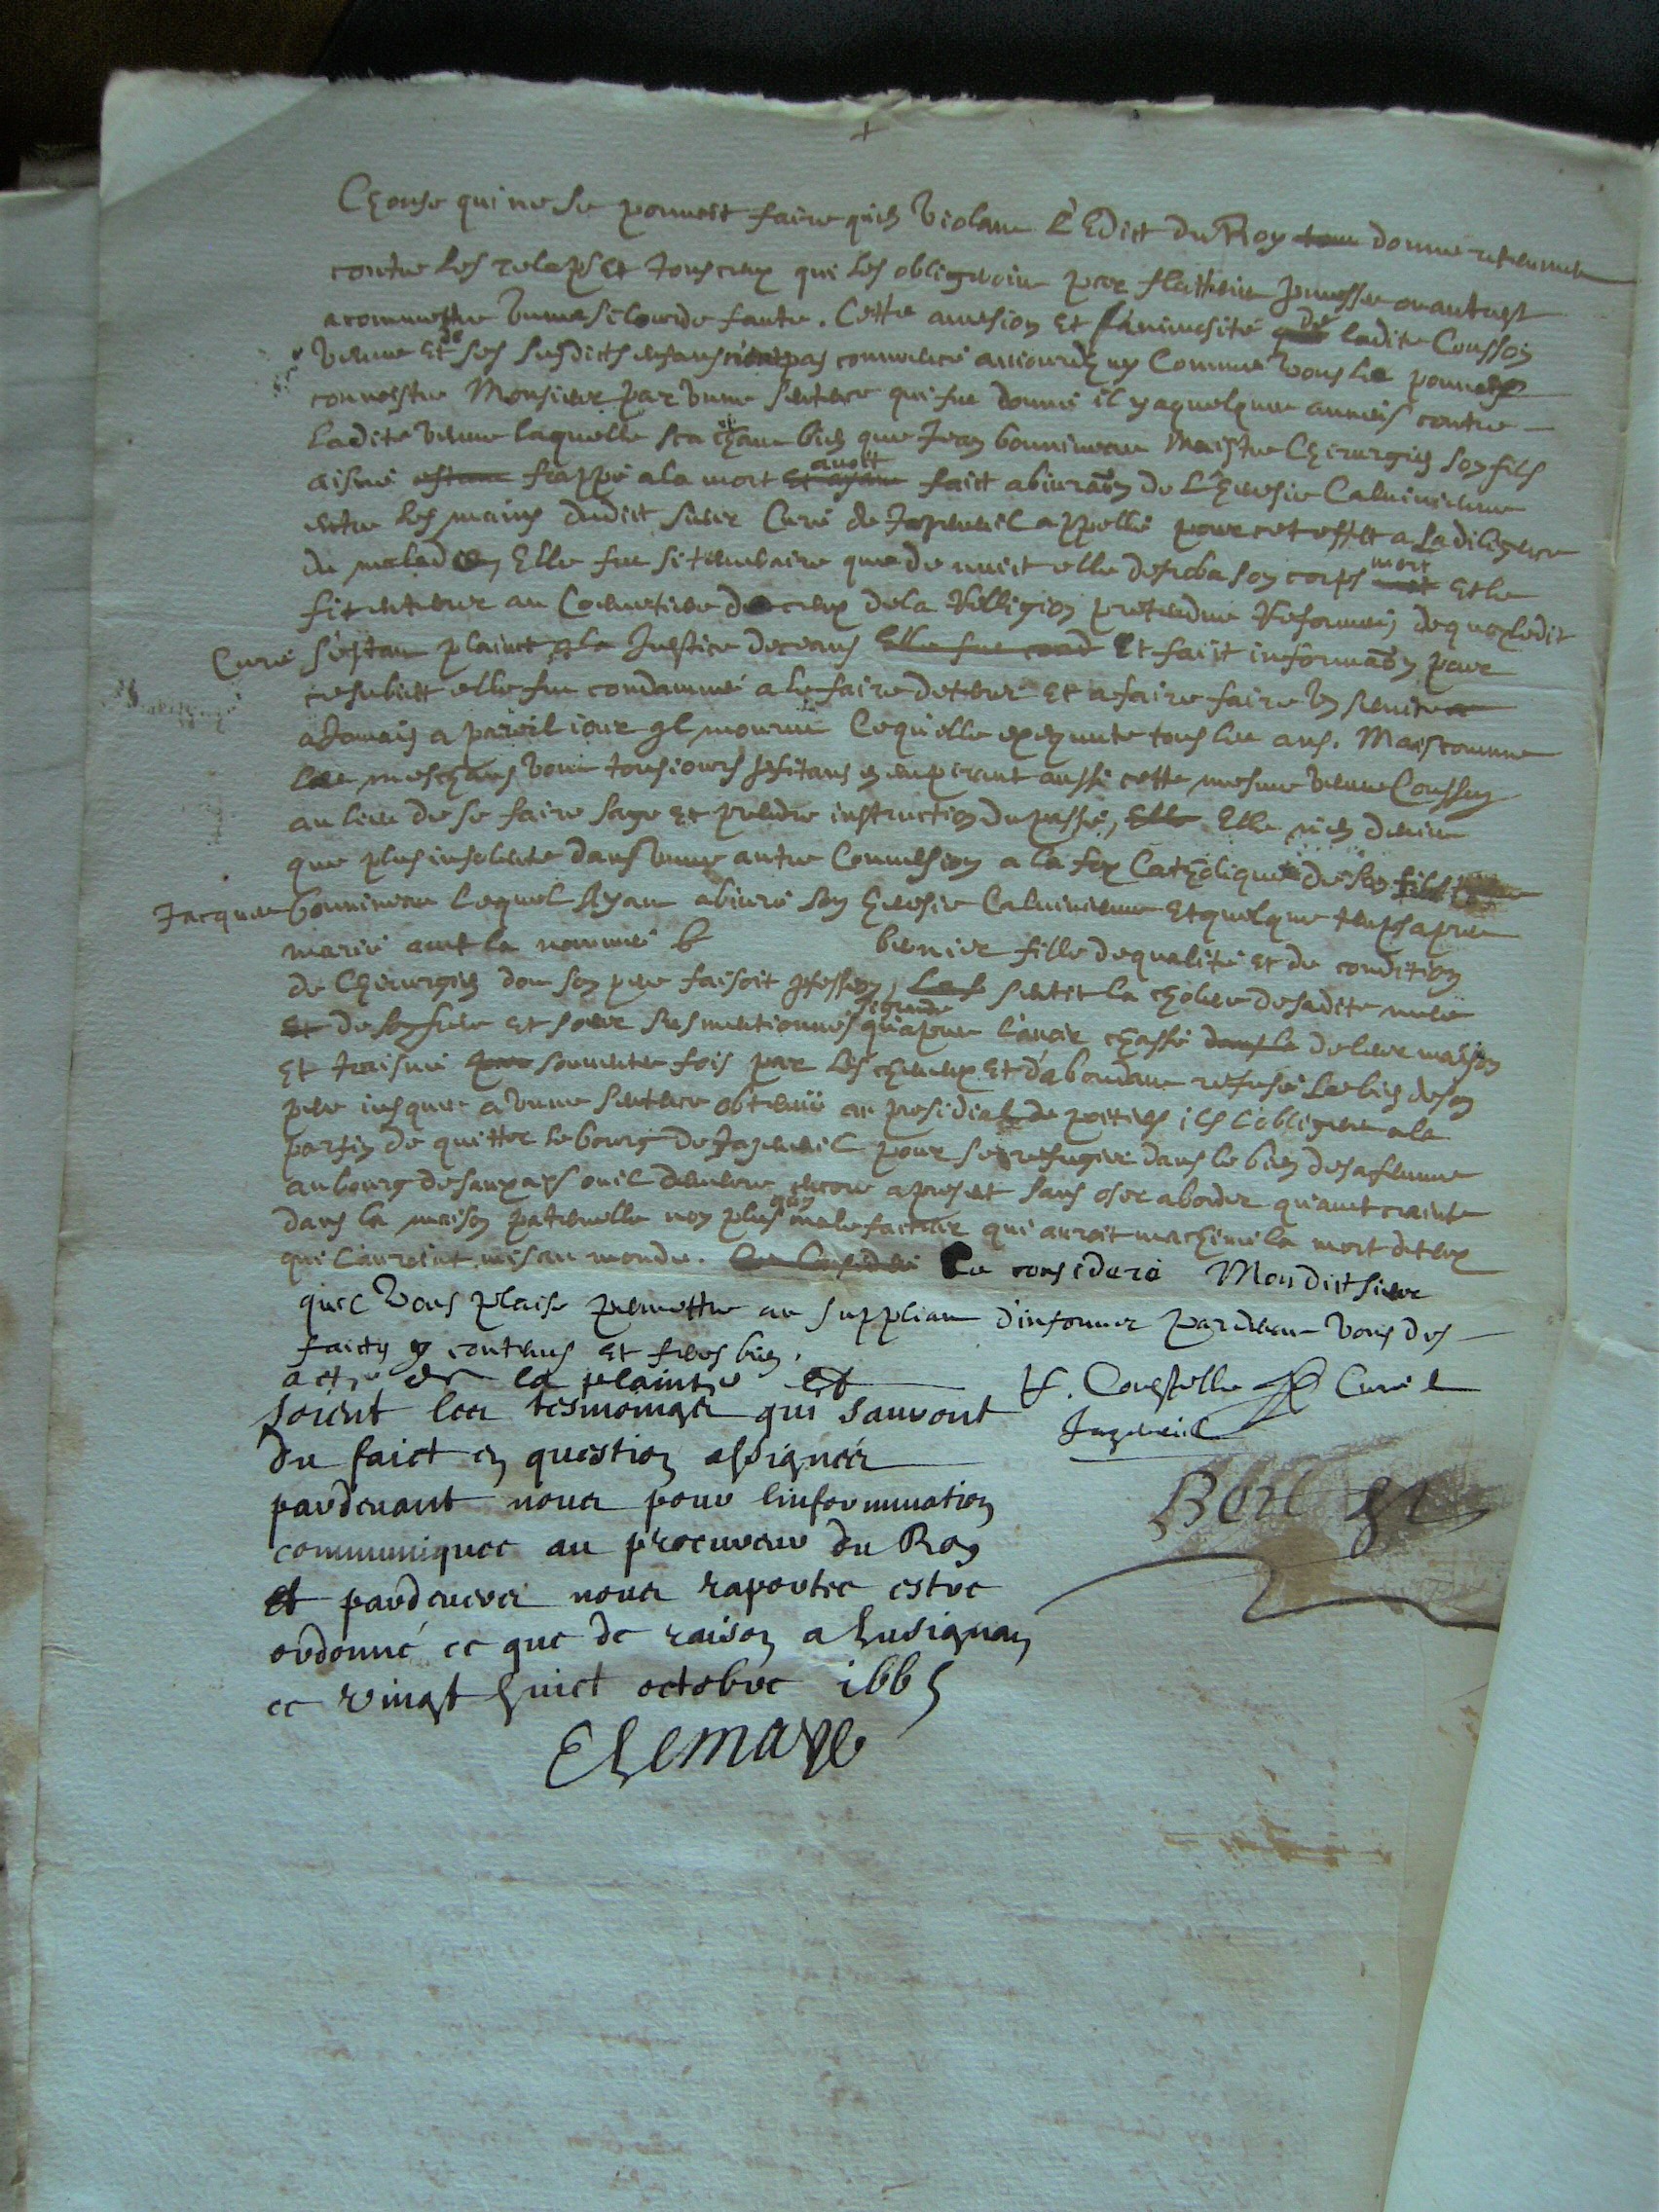 Chouse qui ne se pouvoit faire qu'en violant L'Edict du Roy donné
contre les relaps Et tous ceux qui les obligeroint par flatterie ou autres
a commettre vune si lourde faute. Cette aversion Et l'animosité de ladite Cousson
veuve Et de ses susdicts enfans n'ont pas commencé aujourdhuy Comme vous le pouvez
connoistre Monsieur par vune sentence qui fut donné il y a quelque années contre
ladite veuve laquelle sachant bien que Jean bonnineau Maistre Chirurgien son fils
aisné estant frappé a la mort avoit faict abiuraõn de L'heresie Calvinienne
entre les mains dudict sieur Curé de Jazeneuil appellé pour cet effet a la diligence
du malade Elle fut si temeraire que de nuict elle desroba son corps mort Et le
fit enterrer au Cemetiere de ceux de la Religion pretendue Reformée, de quoy ledit
Curé s'estant plainct a la Justice de ceans Elle fut cond Et faict informaõn pour
ce subiet elle fut condamné a le faire deterer Et a faire faire un service
a Jamais a pareil iour qil mourut Ce qu'elle exequute tous les ans. Mais comme
les meschans vont tousiours en empirant aussi cette mesme veuve Cousson
au lieu de se faire sage Et prendre instruction du passé, Elle Elle n'en devint
que plus insolente dans vune autre Conversion a la foy Catholique de son fils
Jacques bonnineau Lequel Ayant abiuré son heresie Calvinienne Et quelque temps apres
marié avec la nommé b bernier fille de qualité et de condition
de Chirurgien dont son pere faisoit profession, sentit la cholere de sadite mere
Et de son frere Et soeur susmentionnés si grande qu'apres l'avoir chassé dans la de leur maison
Et traisné par souvente fois par les cheveux Et d'abondant refusé le bien de son
pere iusques a vune sentence obtenuë au presidial de poitiers ils l'obligerent a la
parfin de quitter le bourg de Jazeneuil pour se refugier dans le bien de sa femme
au bourg de sanxays ou il demeure encore a present sans oser aborder qu'avec crainte
dans la maison paternelle non plus qun malefacteur qui auroit machiné la mort de ceux
qui l'auroint mis au monde. Ce consideré Mondict sieur
quil vous plaise permettre au suppliant d'informer pardevant vous des
faicts y contenus Et ferés bien.
F. Coustelle Curé de
Jazeneuil
acte de la plainte Et
soient les tesmoings qui sauront
du faict en question assignéz
pardevant nous pour linformmation
communiquee au procureur du Roy
Et pardevers nous raportee estre
ordonné ce que de raison a Lusignan
ce vingt huict octobre 1665
Elemaye